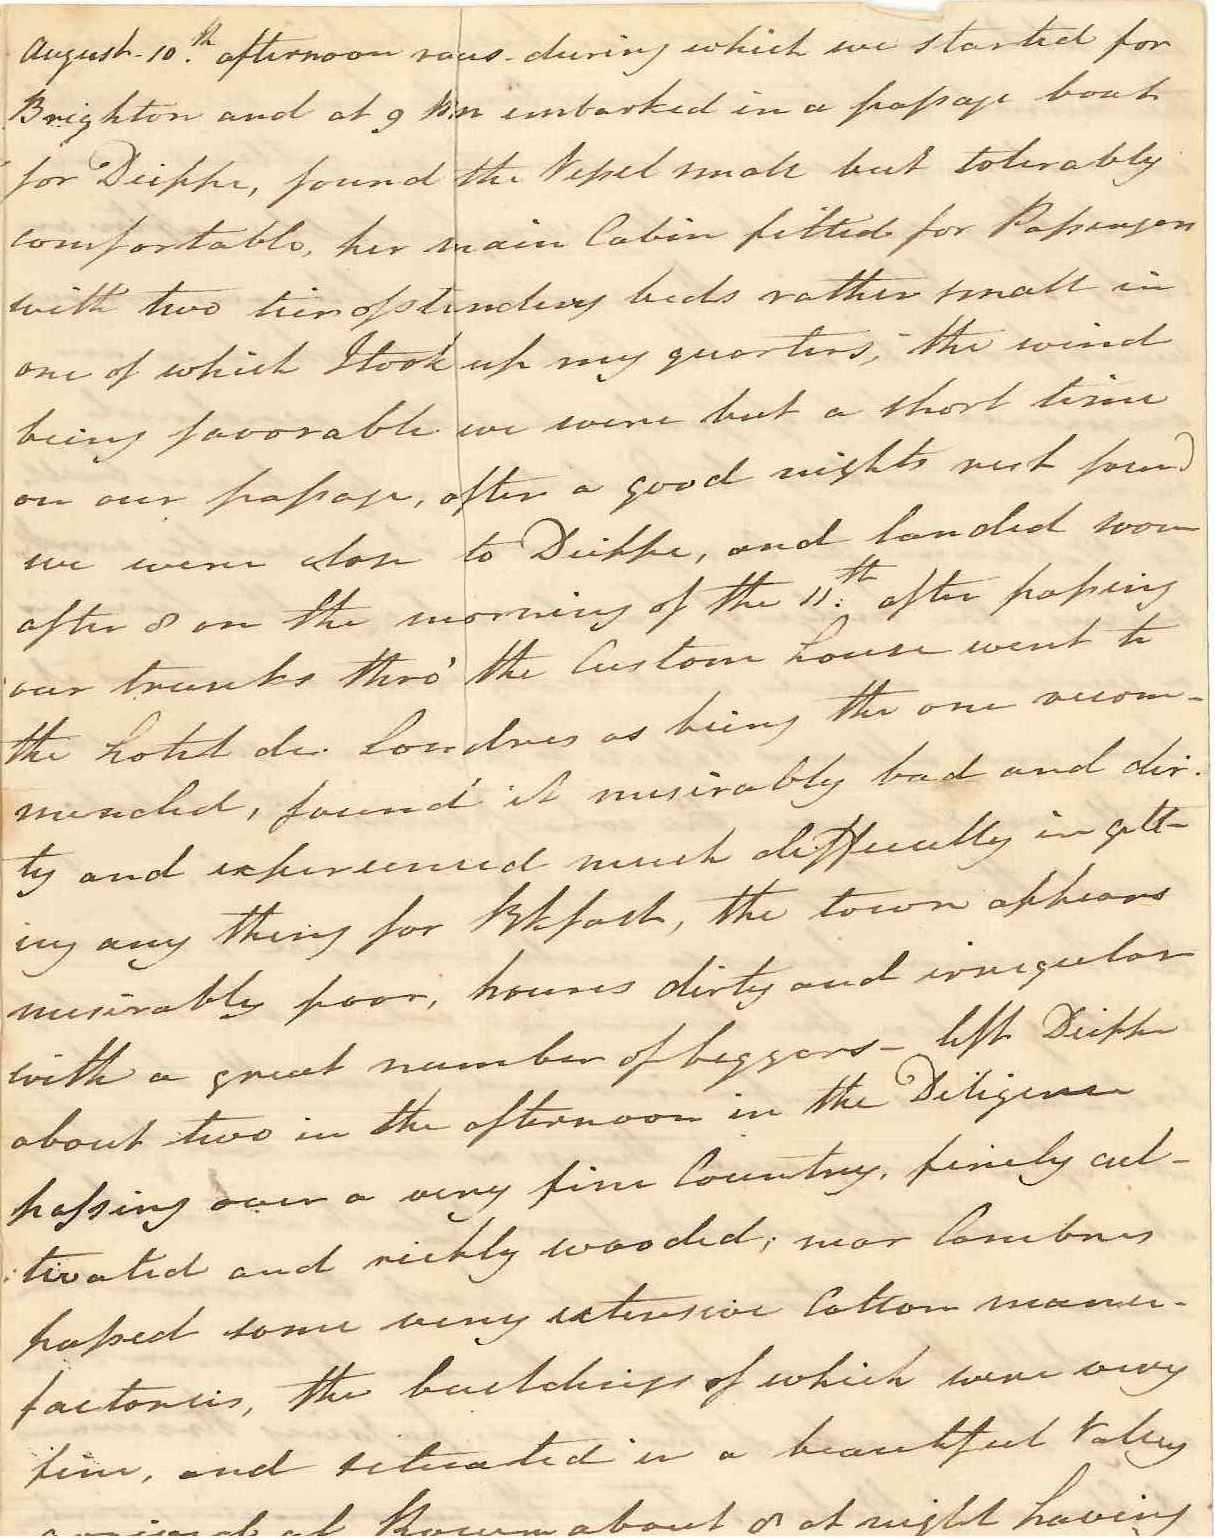 August 10.th afternoon rous. during which we started for
Brighton and at 9 Pm embarked in a passage boat
for Dieppe, found the Vessel small but tolerably
comfortable, her main Cabin fitted for Passengers
with two tier of standing beds rather small in
one of which I took up my quarters, the wind
being favorable we were but a short time
on our passage, after a good nights rest found
we were close to Dieppe, and landed soon
after 8 on the morning of the 11.th after passing
our trunks thro' the Custom house went to
the hotel de Londres as being the one recom-
mended, found it miserably bad and dir-
ty and experienced much difficulty in gett-
ing any thing for Bkfast, the town appears
miserably poor, houses dirty and irregular
with a great number of beggars - left Dieppe
about two in the afternoon in the Diligence
passing over a very fine Country, finely cul-
tivated and richly wooded; near
passed some very extensive Cotton manu-
factories, the buildings of which were very
fine, and situated in a beautiful Valley
arrived at Rouen about 8 at night having